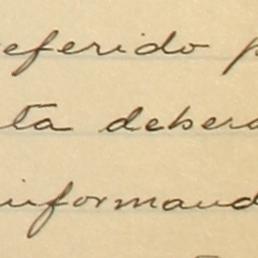 eferido p
ta deberá
informand